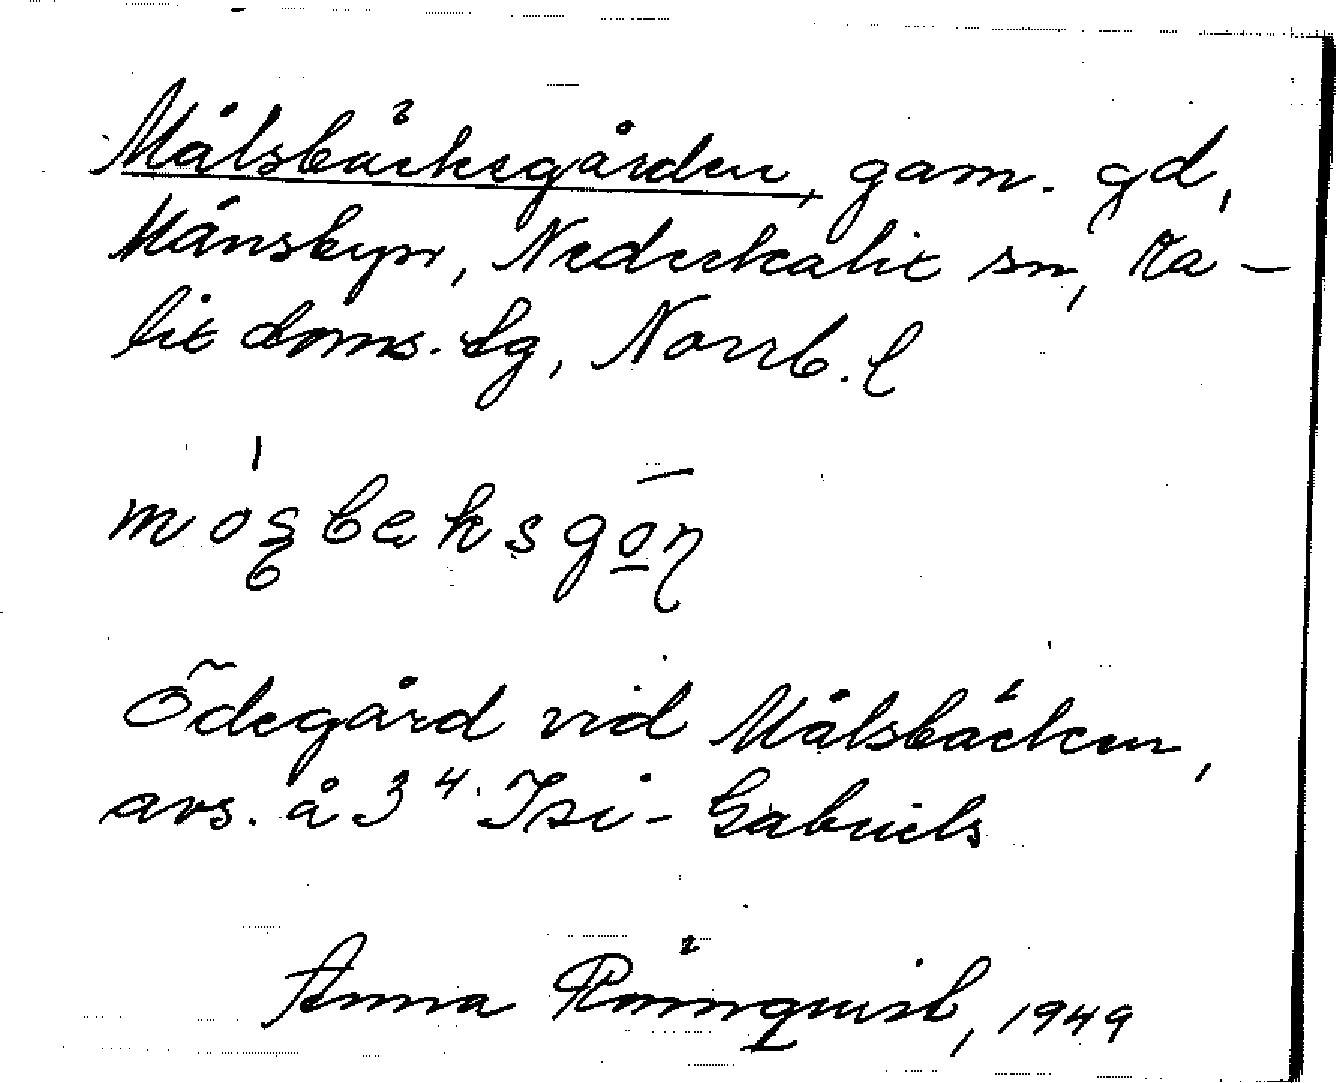 Målsbäcksgården, gam. gd,
Månsbyn, Nederkalix sn, Ka-
lix doms. lg, Norrb. l
Ödegård vid Målsbäcken,
avs. å 3 4. Isi-Gabriels
Anna Rönnquist, 1949